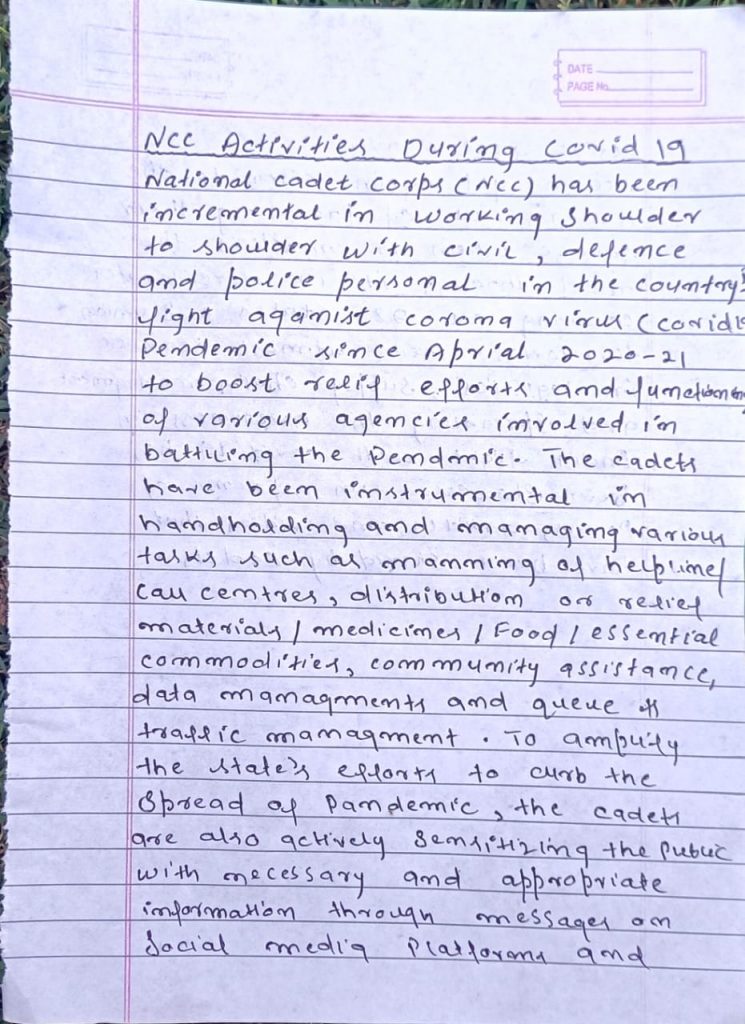 DATE
PAGE No.
NCC Activities During Covid 19
National cadet corps (NCC) has been
incremental in working shoulder
to shoulder with civil, defence
and police personal in the country's
fight againist corona virus (covid19
Pendemic since Aprial 2020-21
to boost relif efforts and functioning
of various agencies involved in
battiling the Pendmic. The cadets
have been instrumental in
handholding and managing various
tasks such as manning of helpline/
call centres, distribution or relief
materials / medicines / Food / essential
commodities, community assistance,
data managments and queue &
traffic managment. To ampify
the state's efforts to curb the
Spread of Pandemic, the cadets
are also actively Sensitizing the Public
with necessary and appropriate
information through messages on
Social media Platforms and